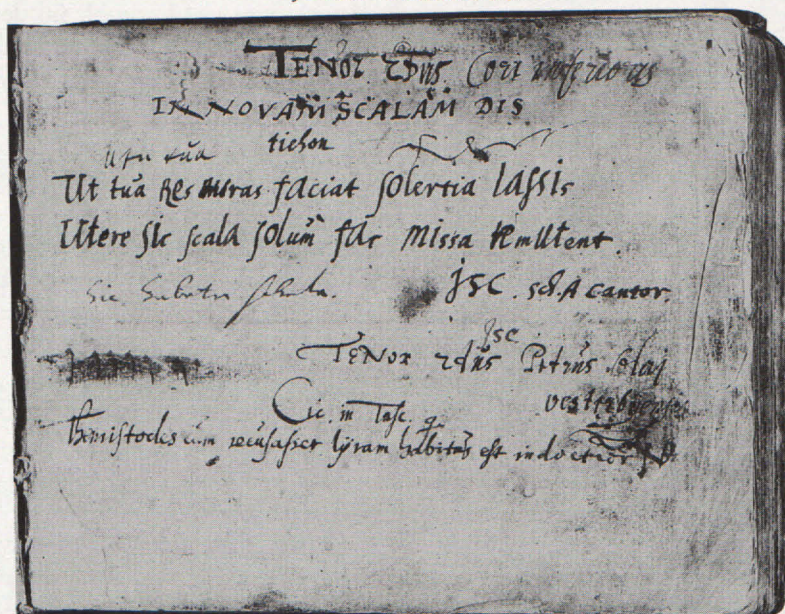 TENOR 2dus Cori inferioris
IN NOVAM SCALAM DIS
tichon
Ut tua
Ut tua Res Miras faciat solertia lassis
Utere sic scala solum fac missa remutent.
Sic
JSC. sch. A cantor.
JSC
TENOR 2dus Petrus
Cic. in Tusc. q.
Themistocles cum recusasset lyram habitus est indoctior